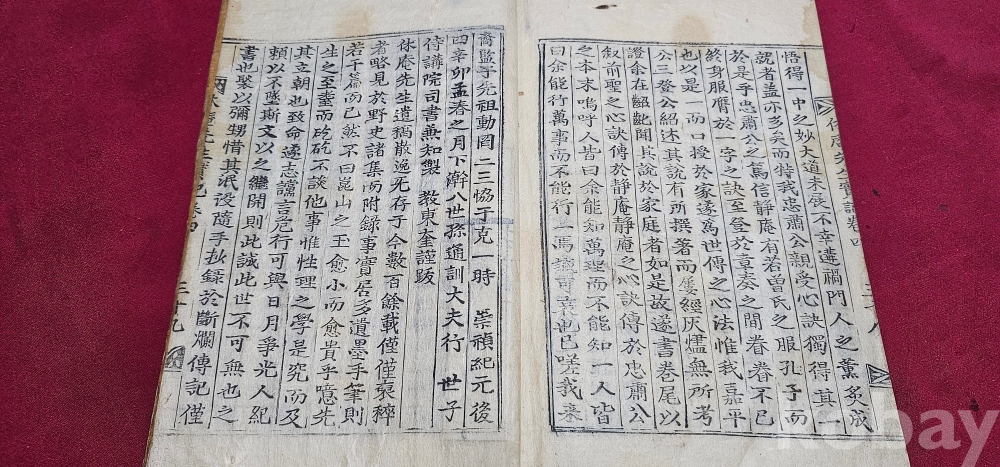 悟得一中之妙大道未展不幸遭禍門人之薰炙成
就者盖亦多矣而特我忠肅公親受心訣獨得其一
於是乎忠肅公之篤信靜庵有若曾氏之服孔子而
終身服膺於一字之訣至登於章奏之間眷眷不已
也以是一而口授於家遂爲世傳之心法惟我嘉平
公三登公紹述其說有所撰著而屢經灰燼無所考
證余在齠齔聞其說於家庭者如是故遂書卷尾以
叙前聖之心訣傳於靜庵靜庵之心訣傳於忠肅公
之本末嗚呼人皆曰余能知萬理而不能知一人皆
曰余能行萬事而不能行一馮 可哀也已嗟我來
裔監乎先祖動罔二三恊于克一時 崇禎紀元後
四辛卯孟春之月下澣八世孫通訓大夫行 世子
侍講院司書兼知製 教東奎謹跋
休庵先生遺稿散逸死存于今數百餘載僅僅裒稡
者略見於野史諸集而附錄事實居多遺墨手筆則
若干篇而已然不曰崑山之玉愈小而愈貴乎噫先
生之至
而矻矻不談他事惟性理之學是究而及
其立朝也致命遂志讜言危行可與日月爭光人紀
賴以不墜斯文以之繼開則此誠此世不可無也之
書也裂以彌甥惜其泯没隨手抄録於斷爛傳記僅
休庵先生實記卷四
二十八
二十九
Kobay